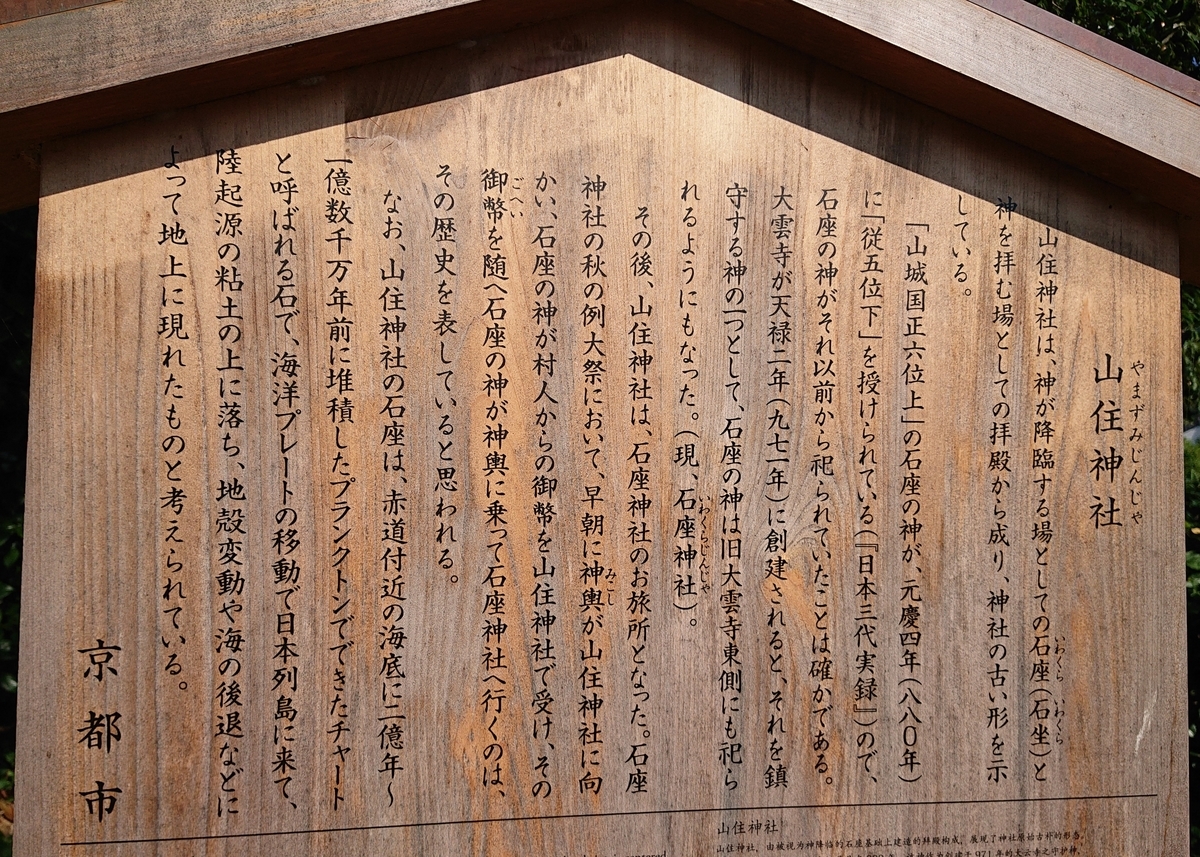 やまずみじんじゃ
山住神社
山住神社は、神が降臨する場としての石座（石坐）と
いわくら いわくら
神を拝む場としての拝殿から成り、神社の古い形を示
している。
「山城国正六位上」の石座の神が、元慶四年（八八〇年）
に「従五位下」を授けられている（『日本三代実録』）ので、
石座の神がそれ以前から祀られていたことは確かである。
大雲寺が天禄二年（九七一年）に創建されると、それを鎮
守する神の一つとして、石座の神は旧大雲寺東側にも祀ら
れるようにもなった。（現、石座神社）。
いわくらじんじゃ
その後、山住神社は、石座神社のお旅所となった。石座
神社の秋の例大祭において、早朝に神輿が山住神社に向
みこし
かい、石座の神が村人からの御幣を山住神社で受け、その
御幣を随へ石座の神が神輿に乗って石座神社へ行くのは、
ごへい
その歴史を表していると思われる。
なお、山住神社の石座は、赤道付近の海底に二億年～
一億数千万年前に堆積したプランクトンでできたチャート
と呼ばれる石で、海洋プレートの移動で日本列島に来て、
陸起源の粘土の上に落ち、地殻変動や海の後退などに
よって地上に現れたものと考えられている。
京都市
山住神社
山住神社，由被视为神降临的石座基础上建造的拜殿构成，展现了神社原始古朴的形态。